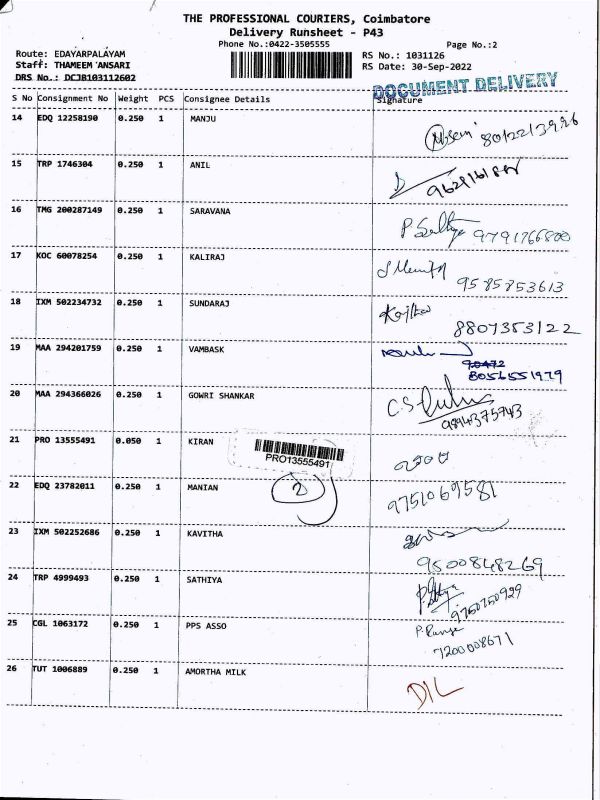 THE PROFESSIONAL COURIERS, Coimbatore
Delivery Runsheet - P43
Phone No.:0422-3505555
Page No.:2
Route: EDAYARPALAYAM
Staff: THAMEEM ANSARI
DRS No.: DCJB103112602
RS No.: 1031126
RS Date: 30-Sep-2022
DOCUMENT DELIVERY
S No Consignment No Weight PCS Consignee Details Signature
14 EDQ 12258190 0.250 1 MANJU
15 TRP 1746304 0.250 1 ANIL
16 TMG 200287149 0.250 1 SARAVANA 9791766800
17 KOC 60078254 0.250 1 KALIRAJ 9585853613
18 IXM 502234732 0.250 1 SUNDARAJ 8807353122
19 MAA 294201759 0.250 1 VAMBASK
8056551979
20 MAA 294366026 0.250 1 GOWRI SHANKAR C.S
9894375743
21 PRO 13555491 0.050 1 KIRAN
PRO13555491
2
22 EDQ 23782011 0.250 1 MANIAN 9751069581
23 IXM 502252686 0.250 1 KAVITHA
9500848269
24 TRP 4999493 0.250 1 SATHIYA
9750750929
25 CGL 1063172 0.250 1 PPS ASSO
7200008671
26 TUT 1006889 0.250 1 AMORTHA MILK DIL